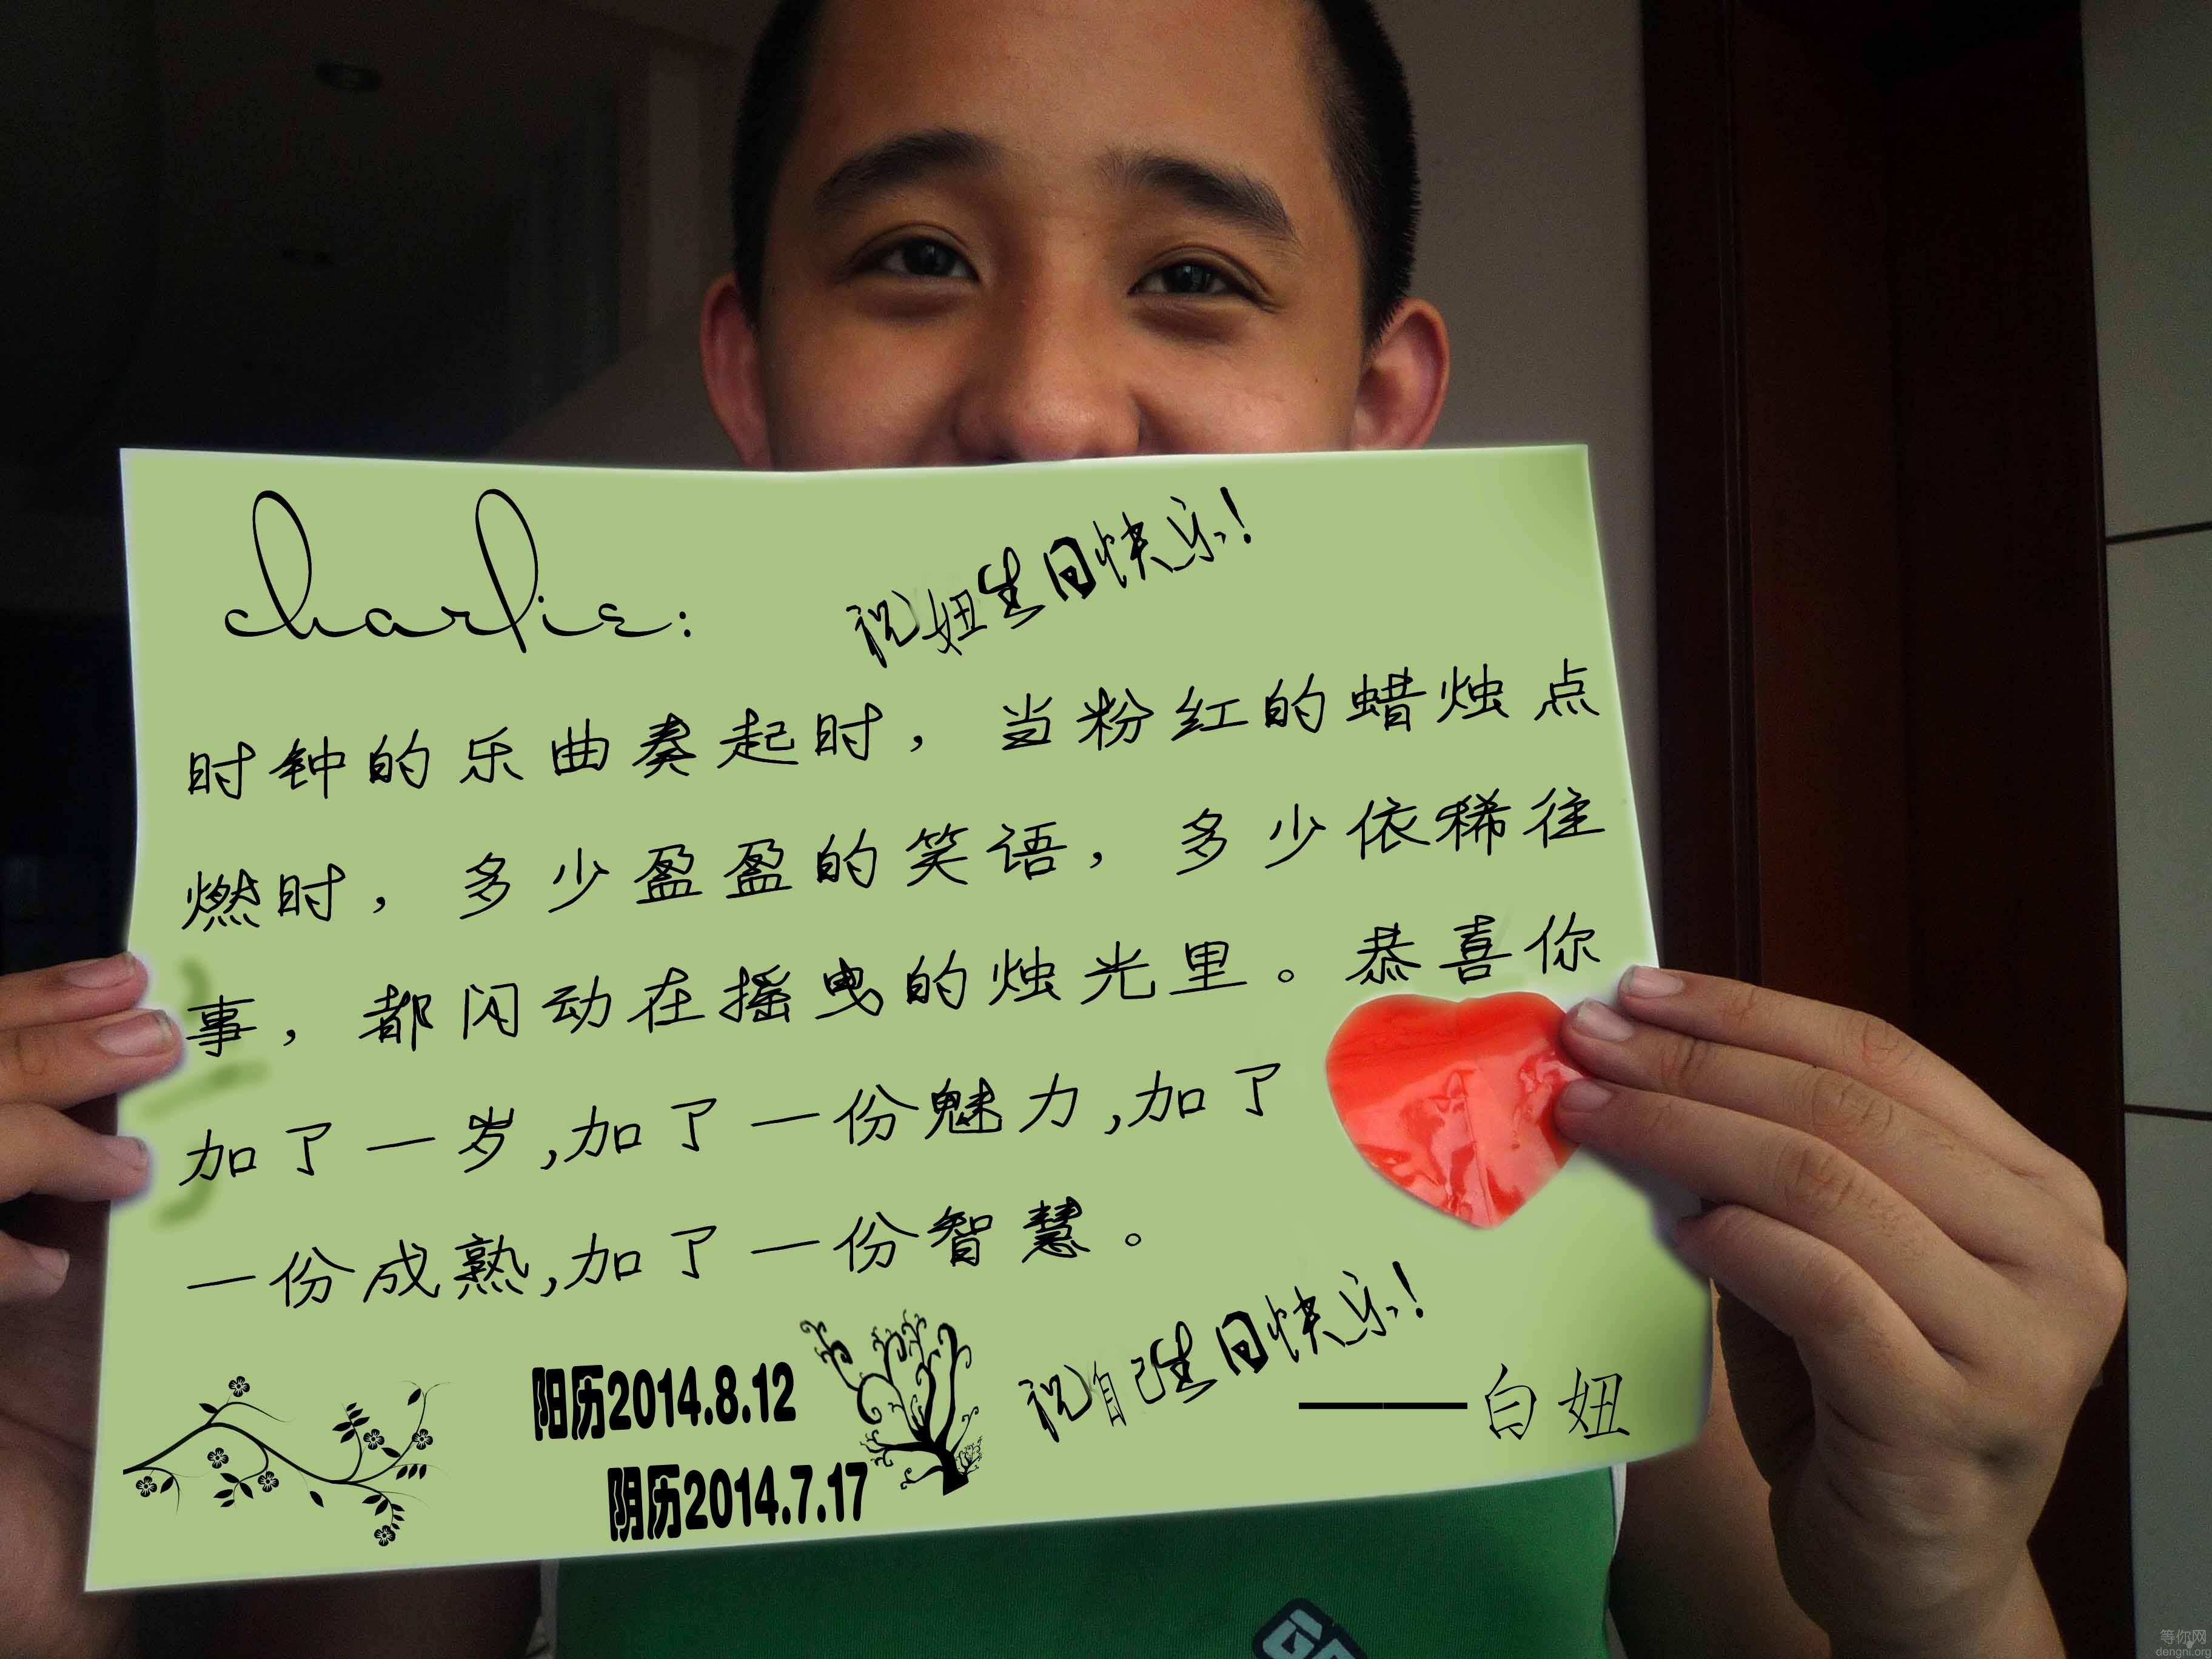 charlie:
祝妞生日快乐!
时钟的乐曲奏起时，当粉红的蜡烛点
燃时，多少盈盈的笑语，多少依稀往
事，都闪动在摇曳的烛光里。恭喜你
加了一岁,加了一份魅力,加了
一份成熟,加了一份智慧。
祝自己生日快乐!
——白妞
阳历2014.8.12
阴历2014.7.17
等你网
dengni.org